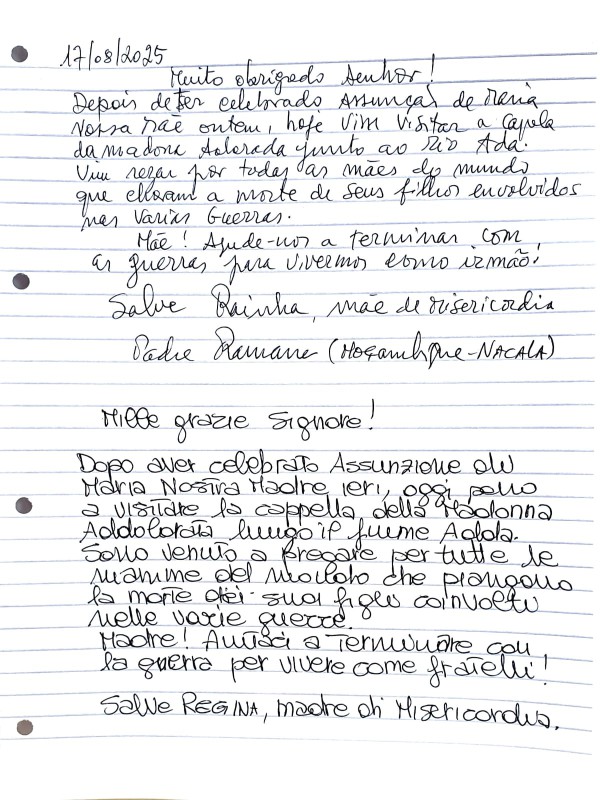 17/08/2025
Muito obrigado Senhor!
Depois de ter celebrado Assunção de Maria
Nossa Mãe ontem, hoje vim visitar a capela
da madona Adolorada junto ao Rio Ada.
Vim rezar por todas as mães do mundo
que choram a morte de seus filhos envolvidos
nas varias Guerras.
Mãe! Ajude-nos a terminar com
as guerras para vivermos como irmão!
Salve Rainha, mãe de misericordia
Padre Ramane (Moçambique-NACALA)
Mille grazie Signore!
Dopo aver celebrato Assunzione di
Maria Nostra Madre ieri, oggi sono
a visitare la cappella della Madonna
Addolorata lungo il fiume Adda.
Sono venuto a pregare per tutte le
mamme del mondo che piangono
la morte dei suoi figli coinvolti
nelle varie guerre.
Madre! Aiutaci a terminare con
la guerra per vivere come fratelli!
Salve REGINA, madre di Misericordia.